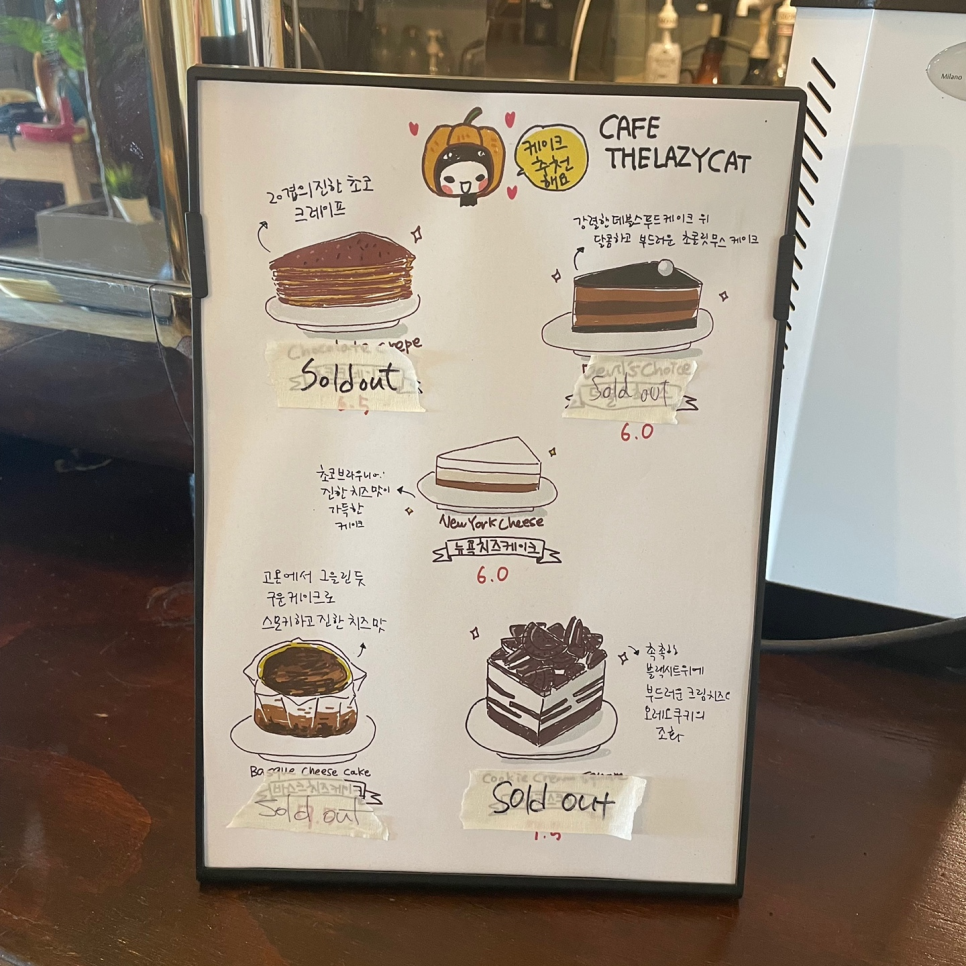 케이크
추천
해요
CAFE
THELAZYCAT
20겹의 진한 초코
크레이프
강렬한 데블스푸드케이크 위
달콤하고 부드러운 초콜릿무스 케이크
Chocolate Crepe
Sold out
6.5
Devil's Choice
Sold out
6.0
초코브라우니에
진한 치즈맛이
가득한
케이크
New York Cheese
뉴욕치즈케이크
6.0
고온에서 그을린듯
구운케이크로
스모키하고 진한 치즈맛
Basque Cheese Cake
바스크치즈케이크
Sold out
촉촉한
블랙시트위에
부드러운 크림치즈와
오레오쿠키의
조화
Cookie Cream
Sold out
Milano